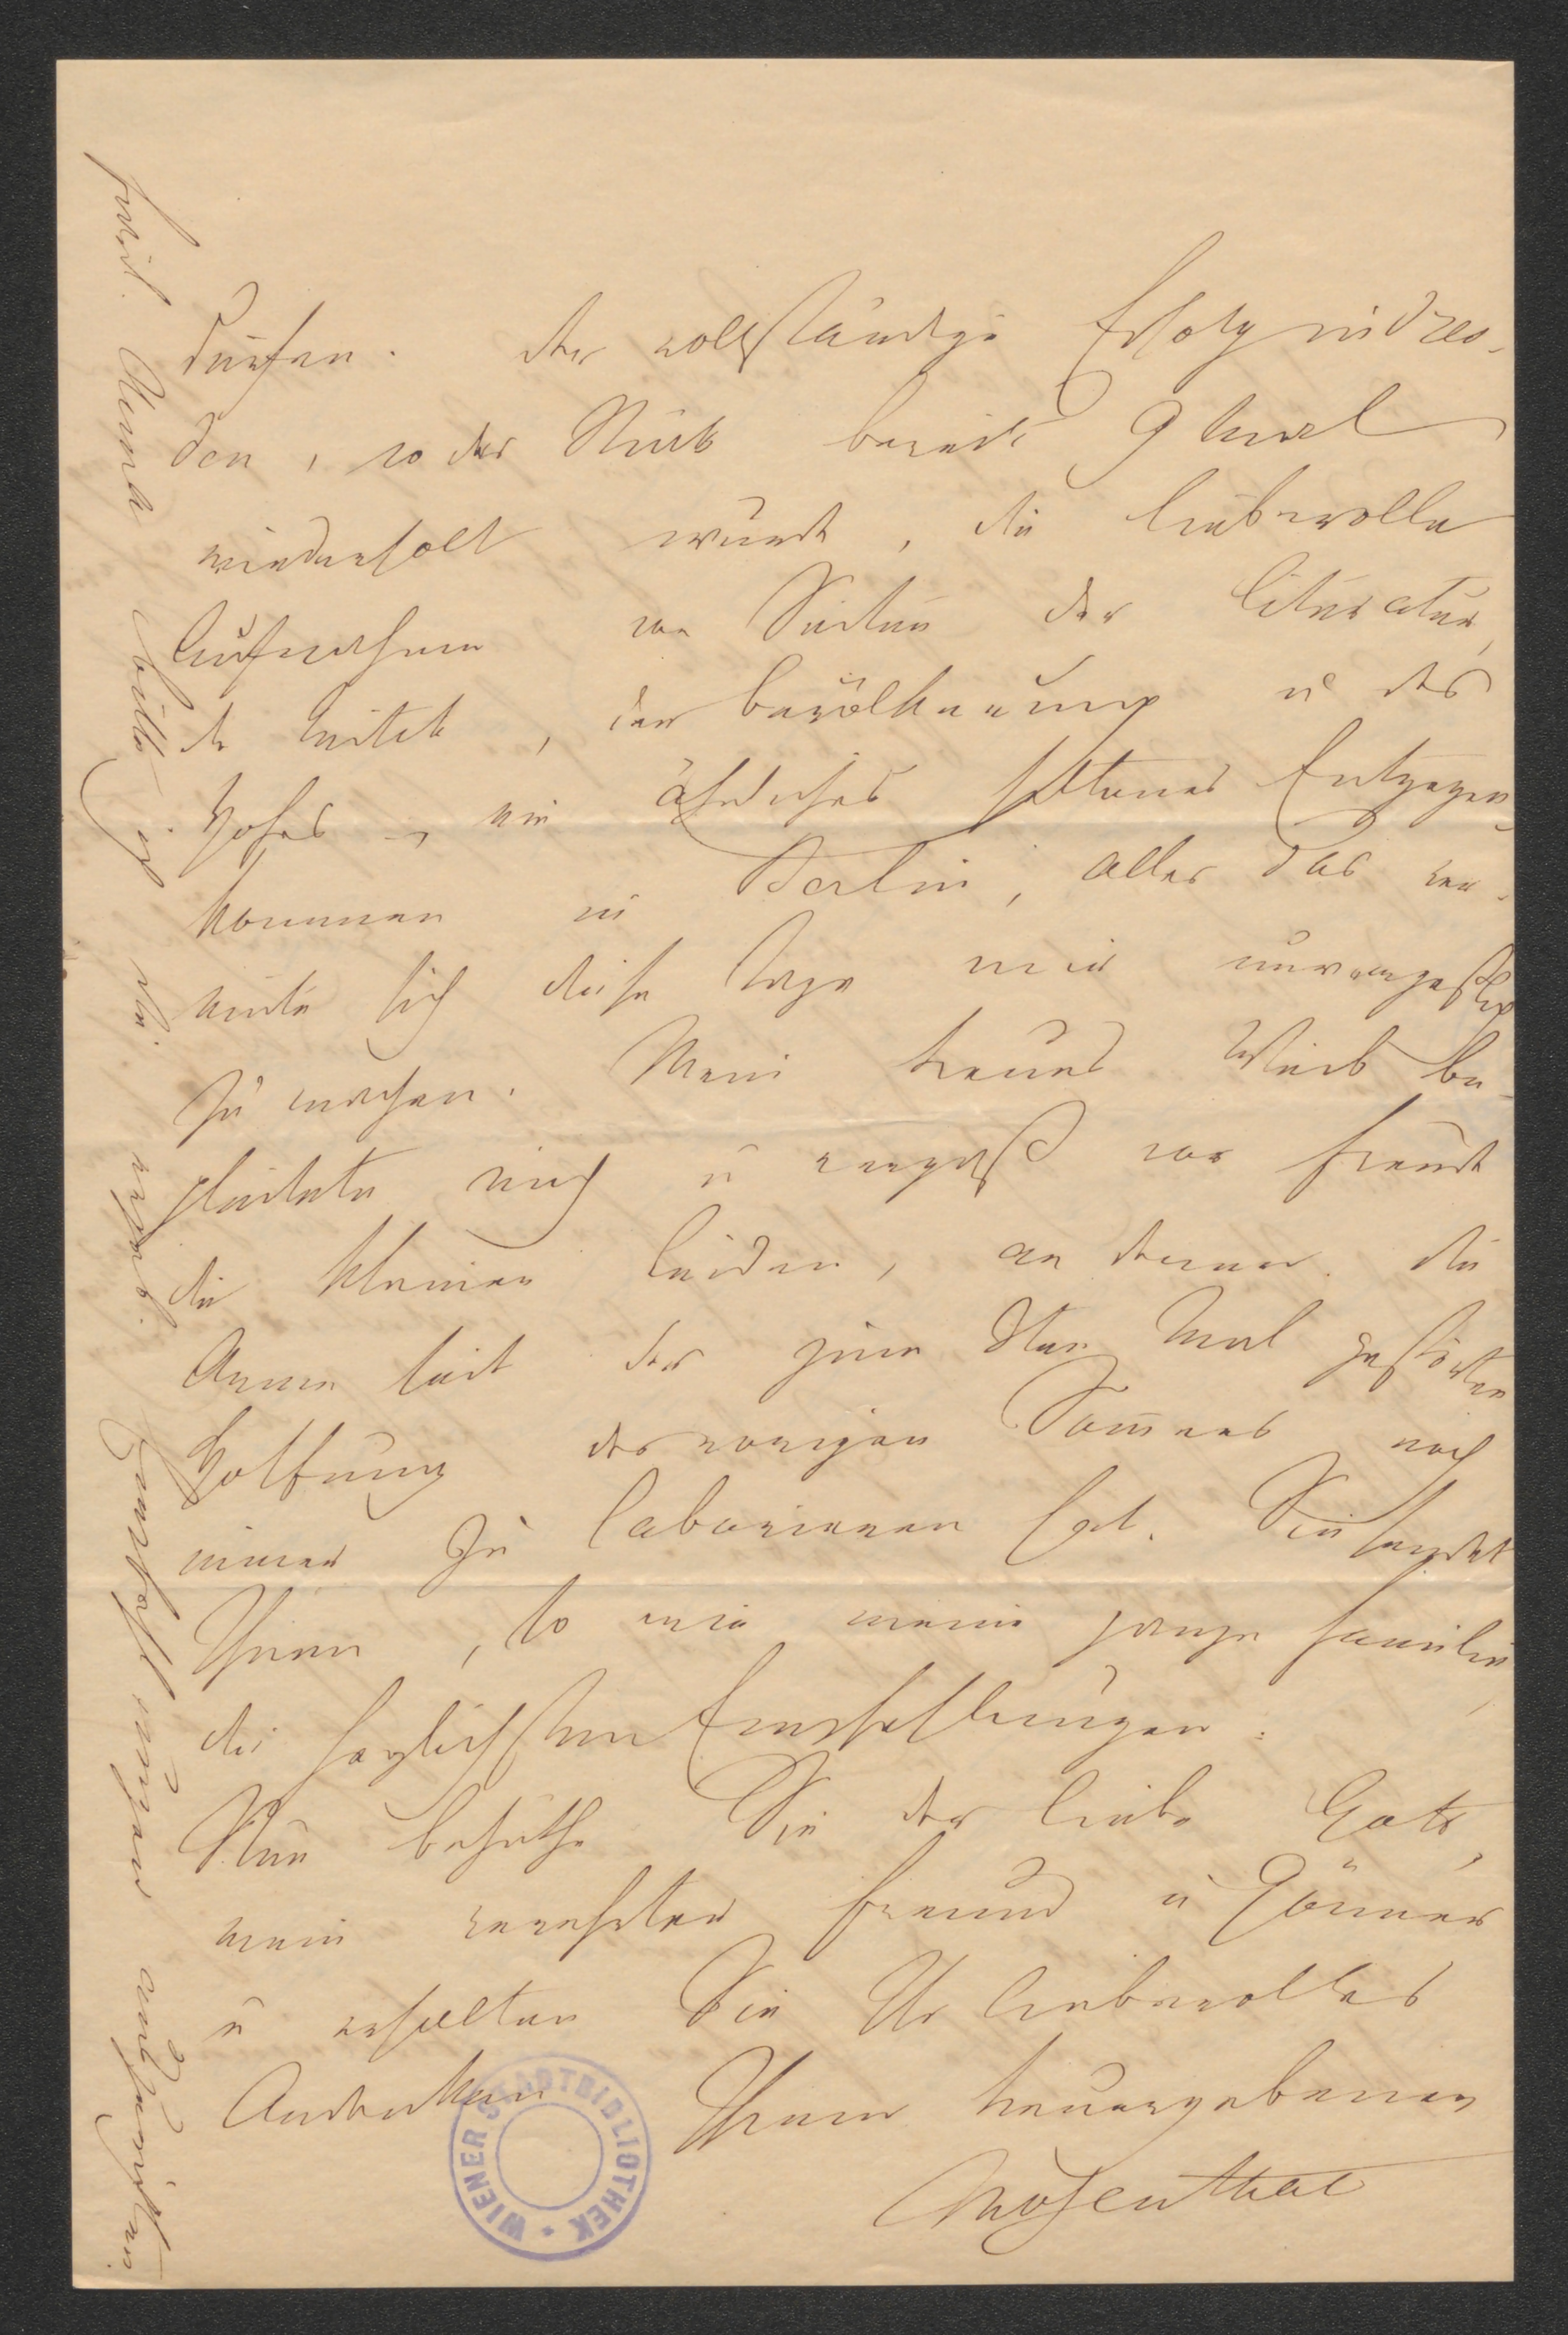 dürfen. Der vollständige Erfolg in Dres-
den, wo das Stück bereits 9 Mal
wiederholt wurde, die liebevolle
Aufnahme von Seiten der Literatur,
der Kritik, der Bevölkerung u des
Hofes, ein ähnliches seltenes Entgegen-
kommen in Berlin, alles das ver-
einte sich diese Tage mir unvergeßlich
zu machen. Mein treues Weib be-
gleitete mich u vergaß vor Freude
die kleinen Leiden, an denen die
Arme seit der zum Mal gestörten
Hoffnung des vorigen Sommers noch
immer zu laborieren hat. Sie sendet
Ihnen, so wie meine ganze Familie,
die herzlichsten Empfehlungen.
Nun behüthe Sie der liebe Gott,
mein verehrter Freund u Gönner
u erhalten Sie Ihr liebevolles
Andenken Ihrem treuergebenen
Mosenthal
bitte ich die
WIENER STADTBIBLIOTHEK